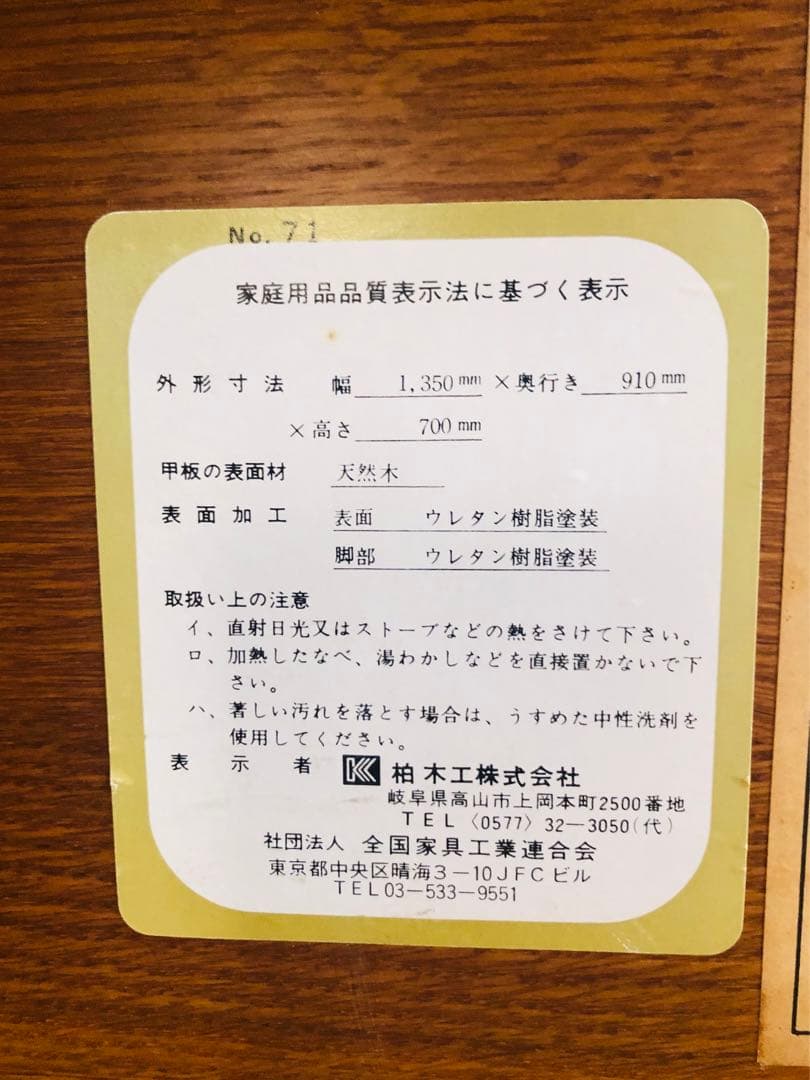 No. 71
家庭用品品質表示法に基づく表示
外形寸法 幅 1,350mm ×奥行き 910mm
×高さ 700mm
甲板の表面材 天然木
表面加工 表面 ウレタン樹脂塗装
脚部 ウレタン樹脂塗装
取扱い上の注意
イ、直射日光又はストーブなどの熱をさけて下さい。
ロ、加熱したなべ、湯わかしなどを直接置かないで下
さい。
ハ、著しい汚れを落とす場合は、うすめた中性洗剤を
使用してください。
表示者 柏木工株式会社
岐阜県高山市上岡本町2500番地
TEL〈0577〉32-3050(代)
社団法人 全国家具工業連合会
東京都中央区晴海3-10JFCビル
TEL03-533-9551